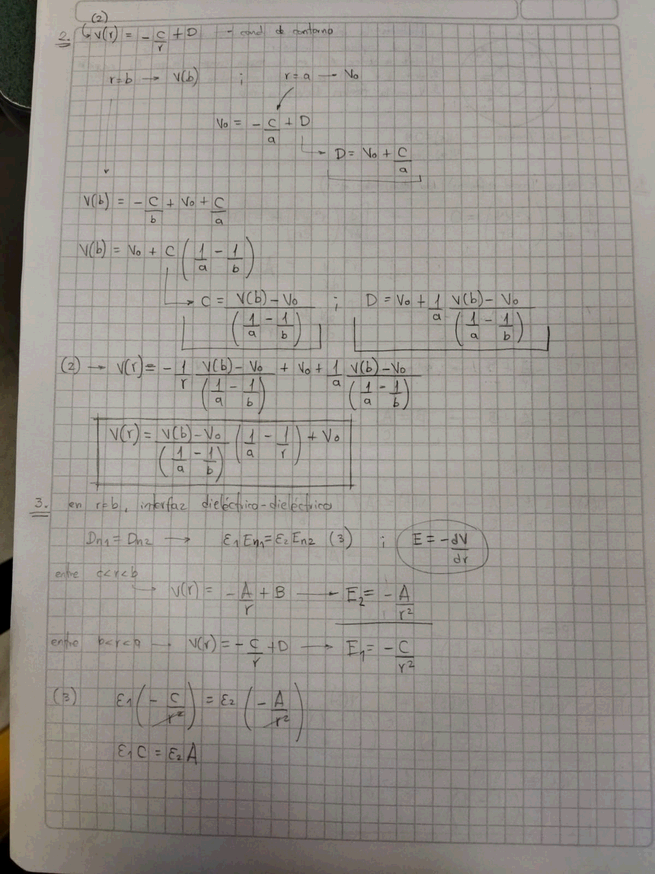 (2)
2. ↳ V(r) = -C/r + D - cond de contorno
r=b → V(b) ; r=a → V₀
V₀ = -C/a + D
D = V₀ + C/a
V(b) = -C/b + V₀ + C/a
V(b) = V₀ + C (1/a - 1/b)
C = (V(b) - V₀)/(1/a - 1/b) ; D = V₀ + 1/a (V(b) - V₀)/(1/a - 1/b)
(2) → V(r) = -1/r (V(b) - V₀)/(1/a - 1/b) + V₀ + 1/a (V(b) - V₀)/(1/a - 1/b)
V(r) = (V(b) - V₀)/(1/a - 1/b) (1/a - 1/r) + V₀
3. en r=b, interfaz dieléctrico-dieléctrico
Dn₁ = Dn₂ → ε₁En₁ = ε₂En₂ (3) ; E = -dV/dr
entre c<r<b
V(r) = -A/r + B → E₂ = -A/r²
entre b<r<a → V(r) = -C/r + D → E₁ = -C/r²
(3) ε₁(-C/r²) = ε₂(-A/r²)
ε₁C = ε₂A